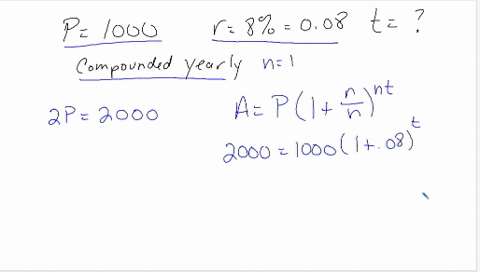 P = 1000 r = 8% = 0.08 t = ?
Compounded yearly n=1
2P = 2000 A = P(1 + r/n)^nt
2000 = 1000(1+.08)^t